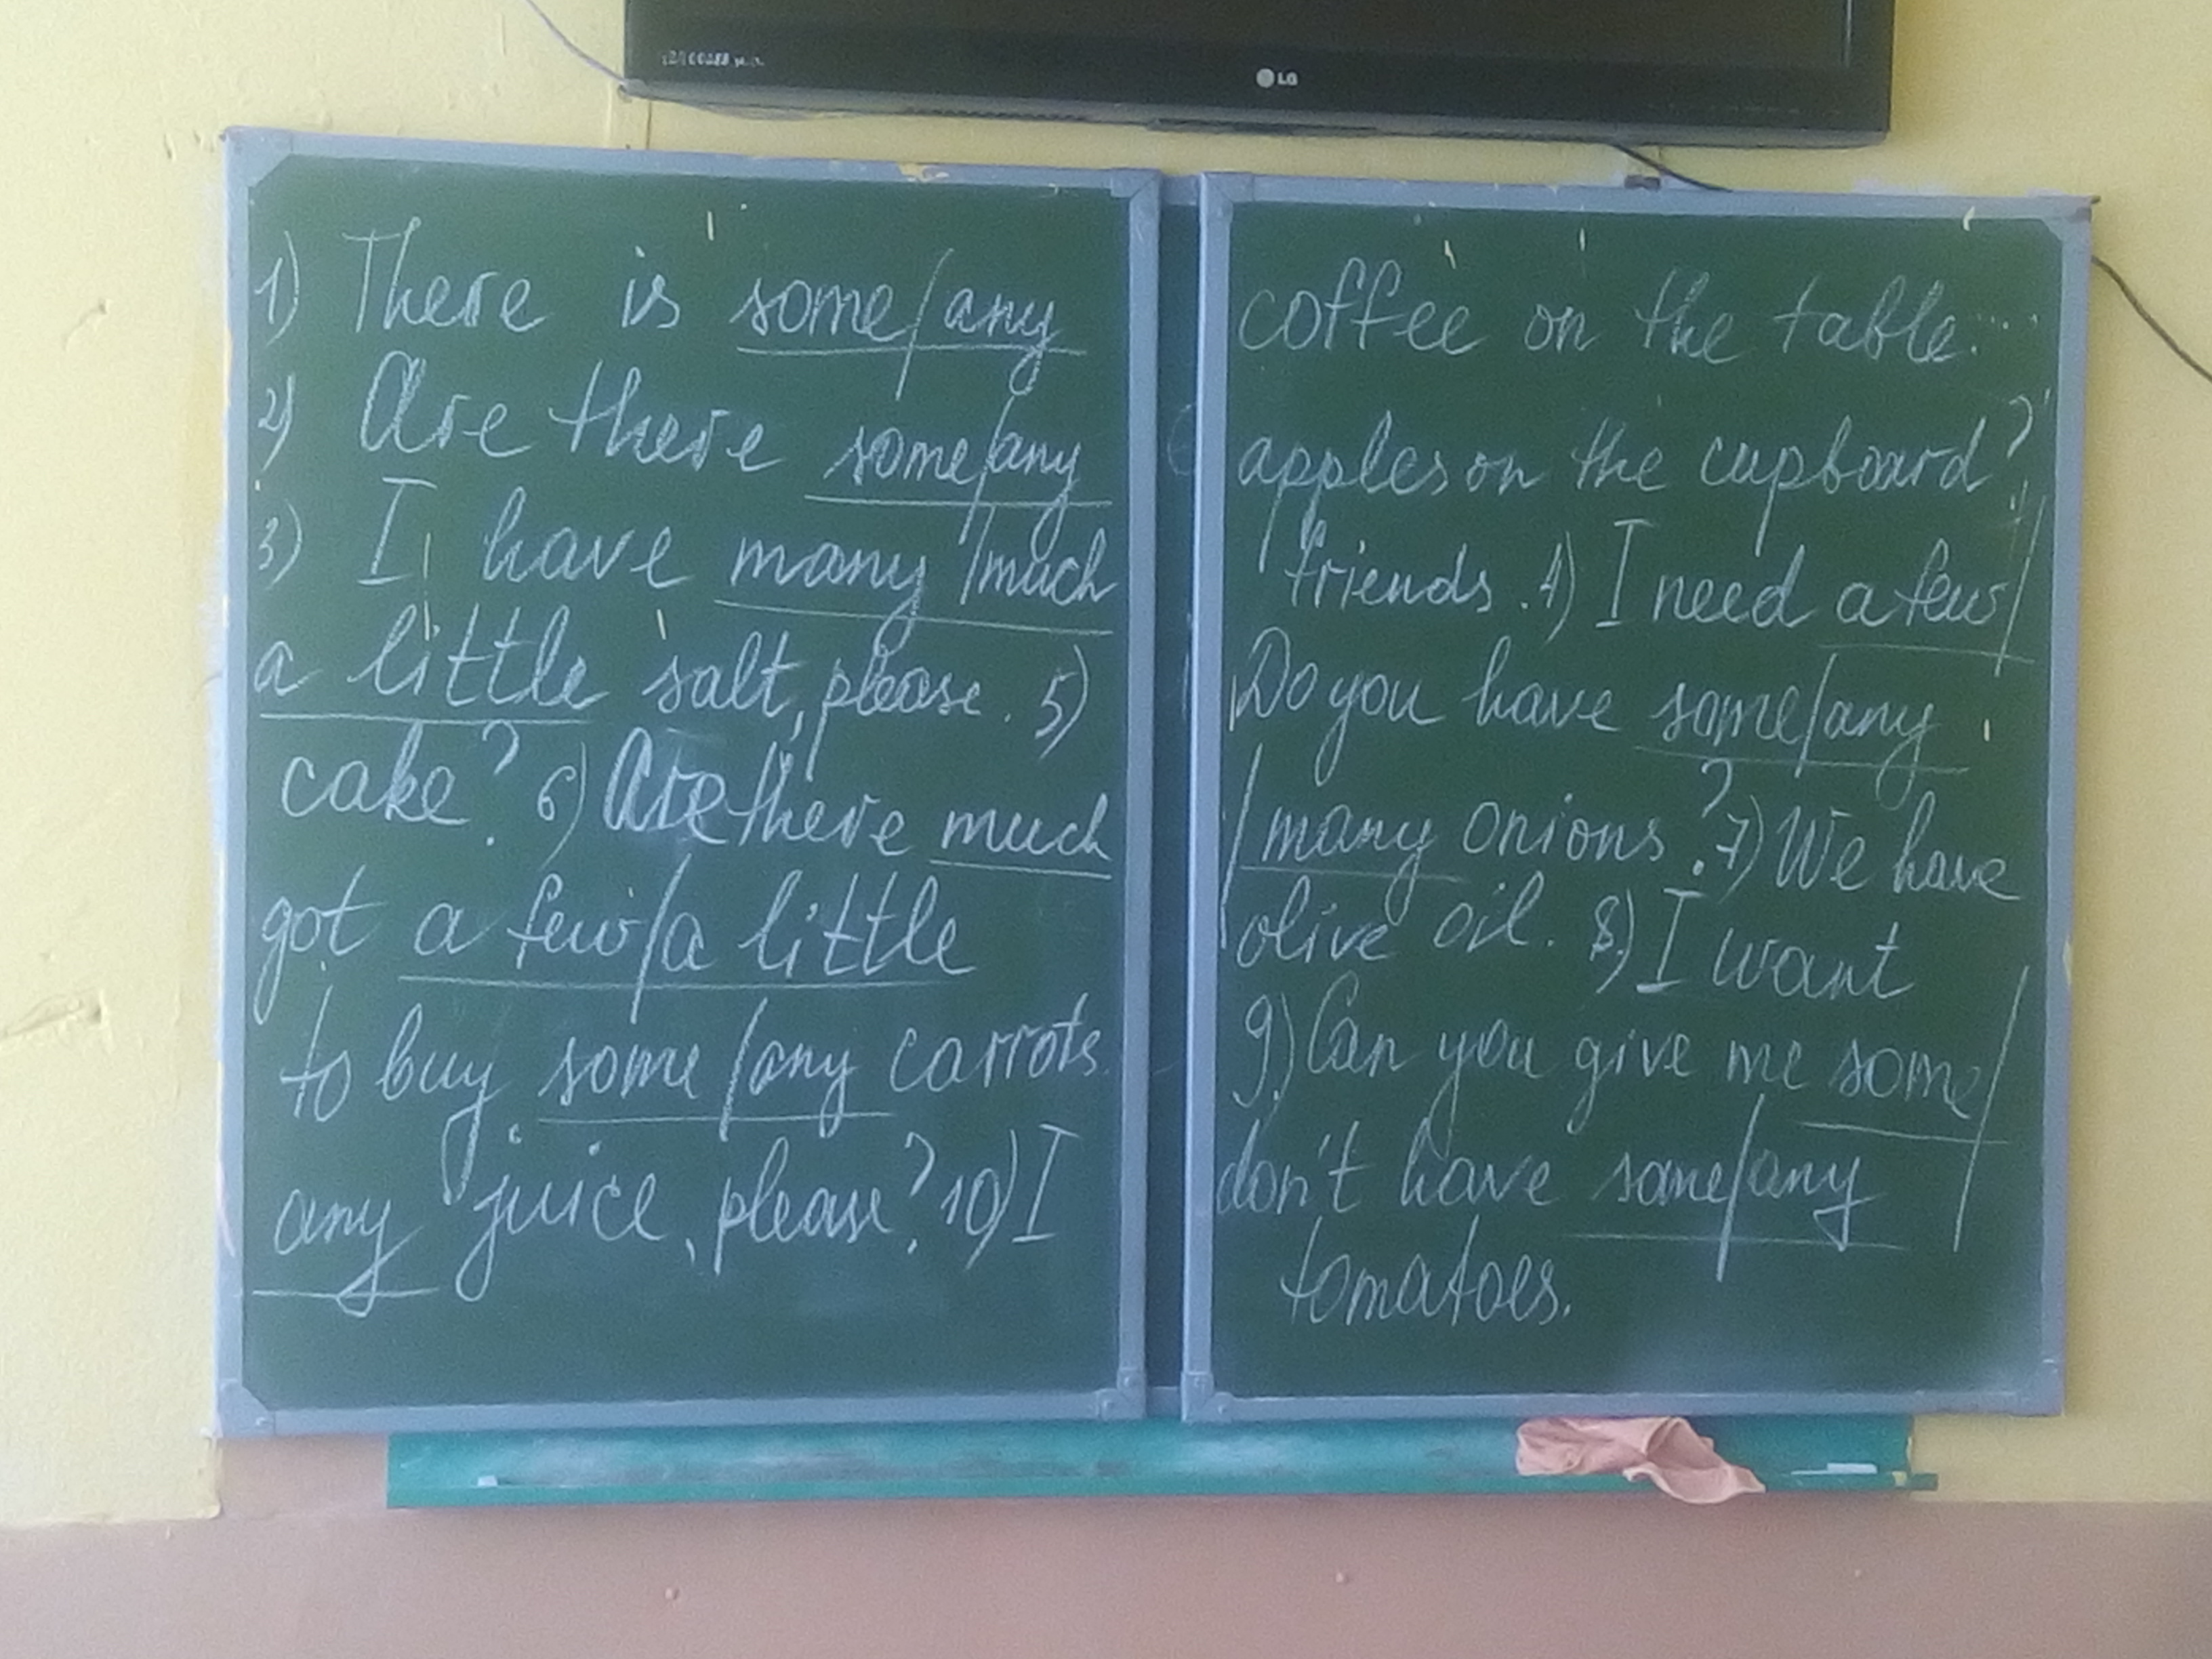 LG
1) There is some/any coffee on the table.
2) Are there some/any apples on the cupboard?
3) I have many/much friends. 4) I need a few/
a little salt, please. 5) Do you have some/any
cake? 6) Are there much/many onions? 7) We have
got a few/a little olive oil. 8) I want
to buy some/any carrots. 9) Can you give me some/
any juice, please? 10) I don't have some/any
tomatoes.